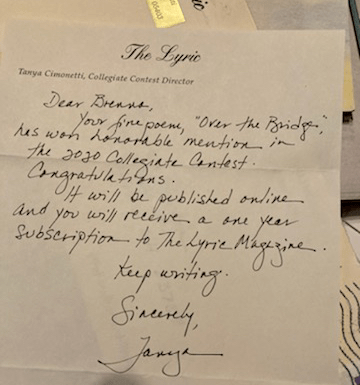 The Lyric
Tanya Cimonetti, Collegiate Contest Director
Dear Brenna,
Your fine poem, "Over the Bridge",
has won honorable mention in
the 2020 Collegiate Contest.
Congratulations.
It will be published online
and you will receive a one year
subscription to The Lyric Magazine.
Keep writing.
Sincerely,
Tanya